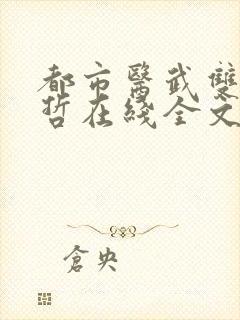 都市醫武雙
哲在綫全文
倉央